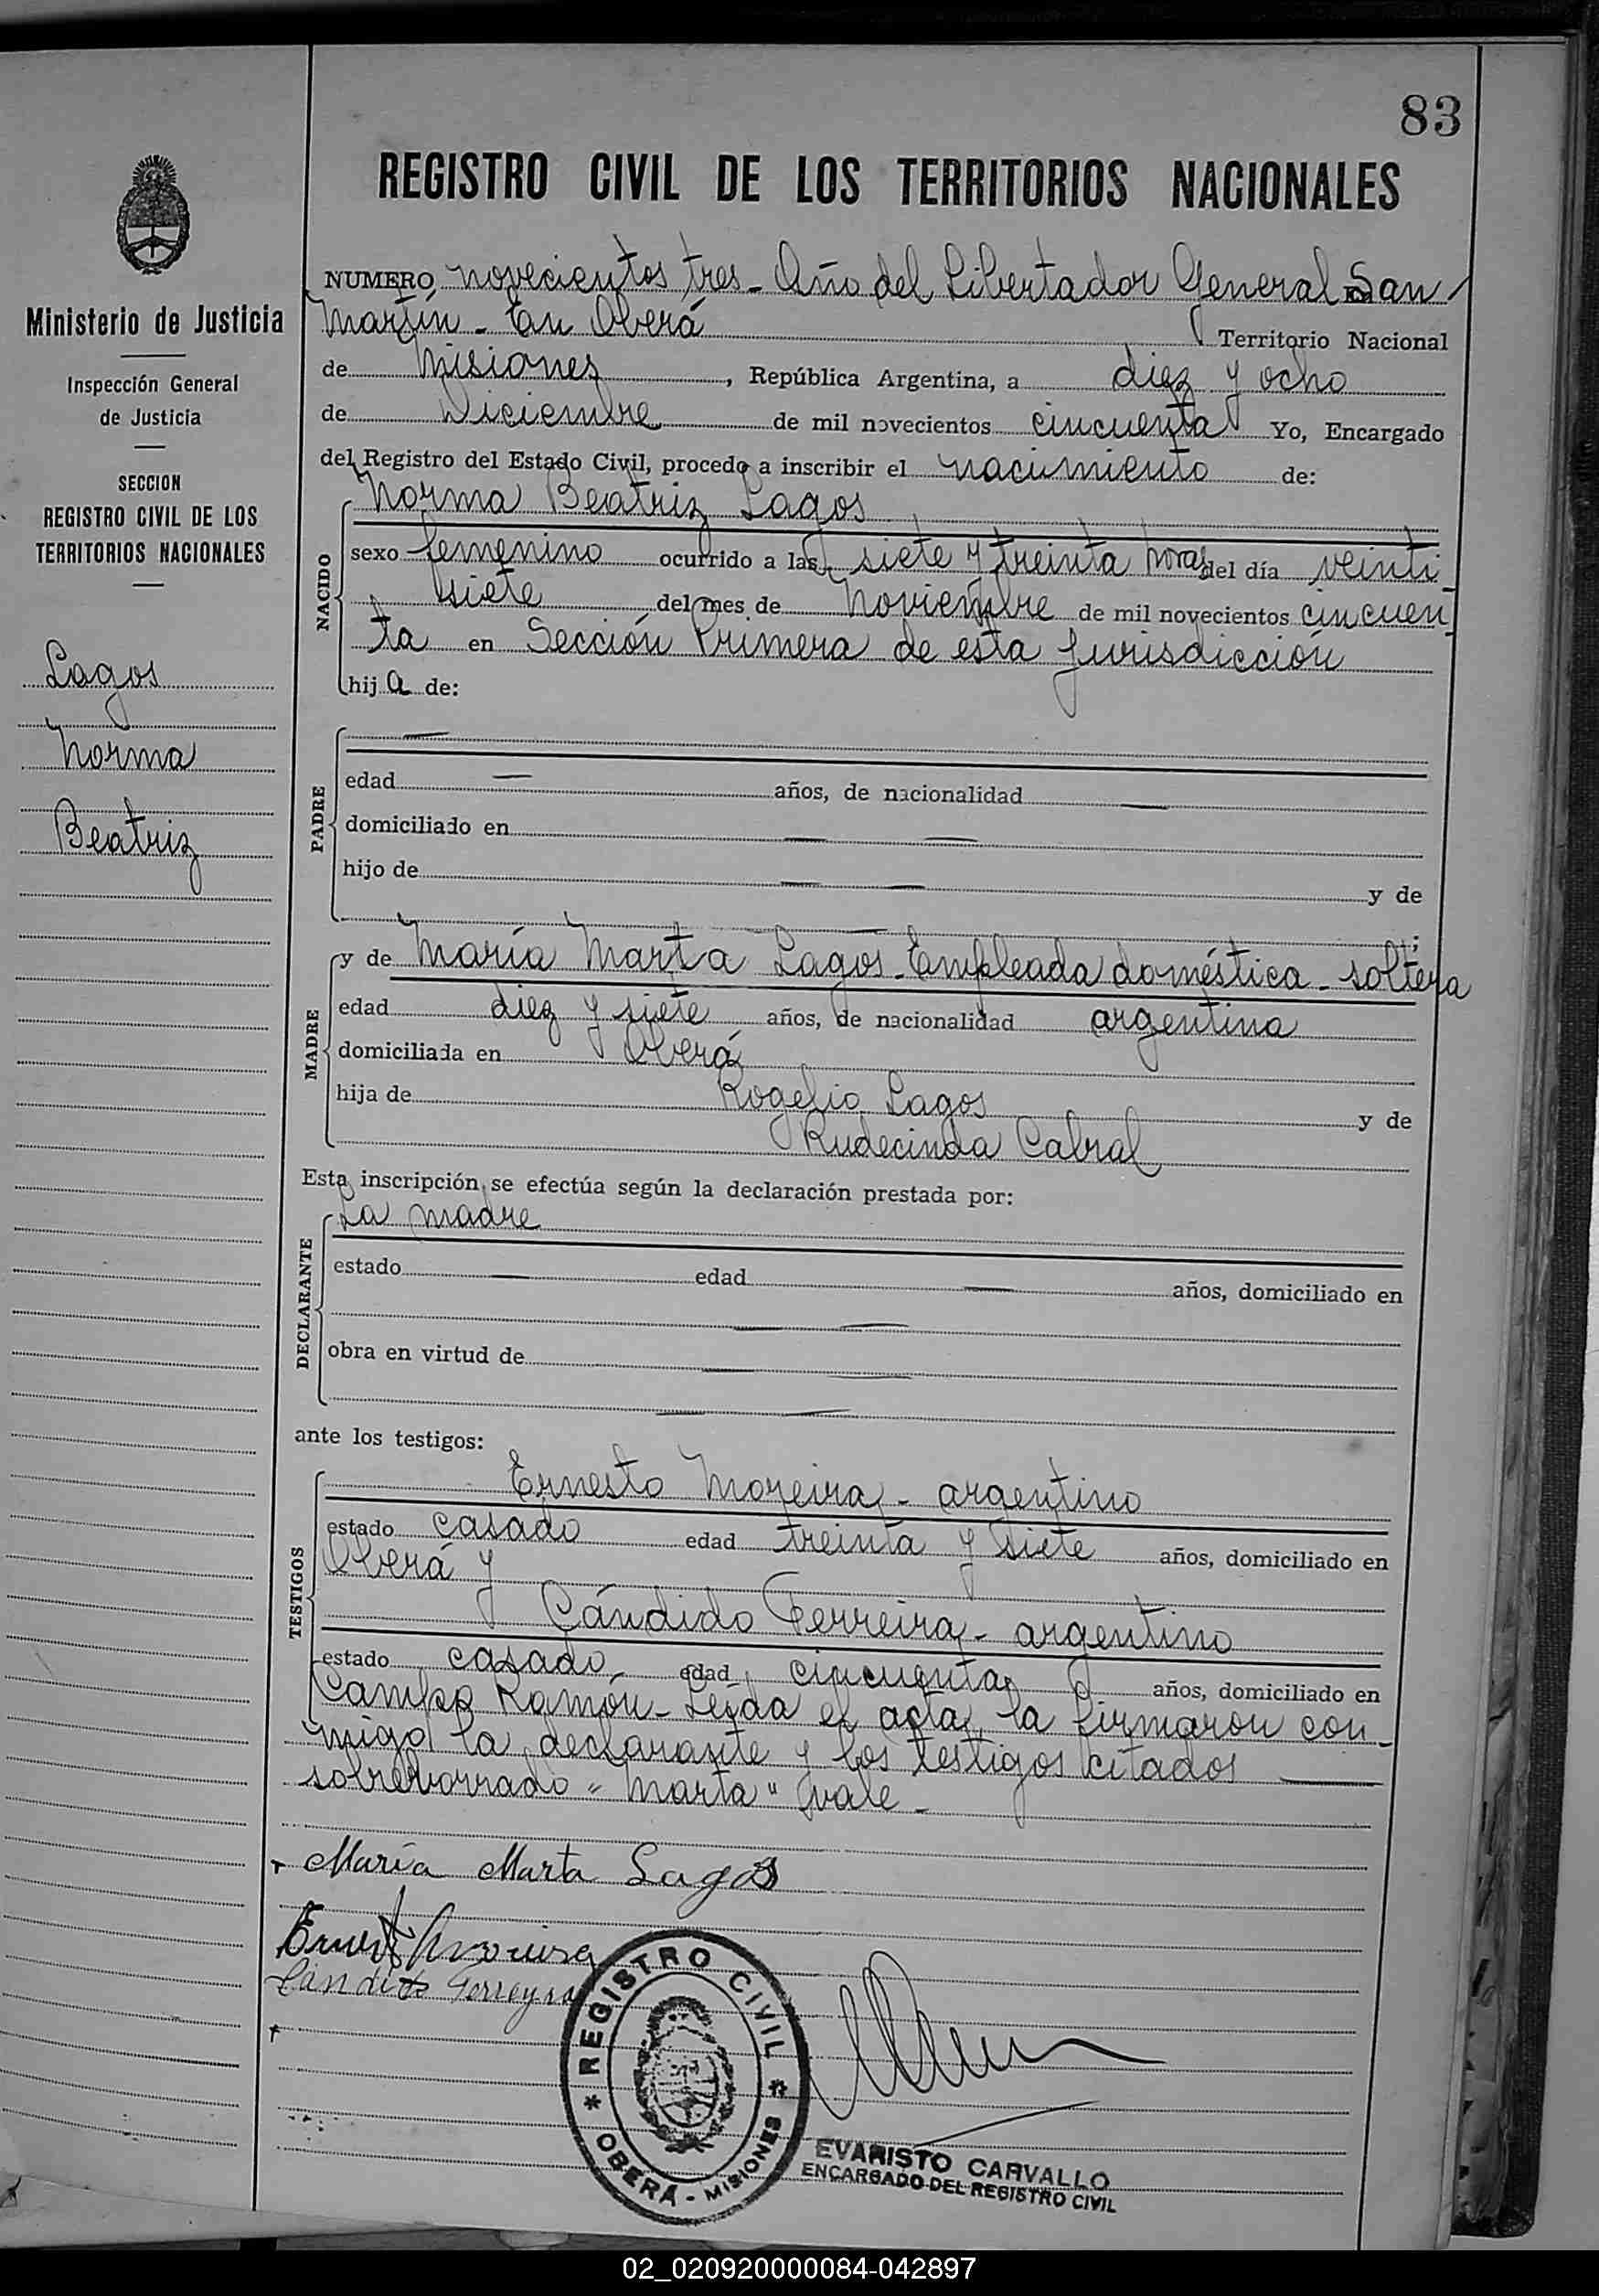 83
REGISTRO CIVIL DE LOS TERRITORIOS NACIONALES
Ministerio de Justicia
Inspección General
de Justicia
SECCION
REGISTRO CIVIL DE LOS
TERRITORIOS NACIONALES
Lagos
Norma
Beatriz
NUMERO novecientos tres - Año del Libertador General San
Martín - En Oberá Territorio Nacional
de Misiones, República Argentina, a diez y ocho
de Diciembre de mil novecientos cincuenta Yo, Encargado
del Registro del Estado Civil, procedo a inscribir el nacimiento de:
Norma Beatriz Lagos
NACIDO
sexo femenino ocurrido a las siete y treinta horas del día veinti
siete del mes de Noviembre de mil novecientos cincuen
ta en Sección Primera de esta jurisdicción
hij a de:
PADRE
—
edad — años, de nacionalidad —
domiciliado en — —
hijo de — — y de
;
MADRE
y de María Marta Lagos - Empleada doméstica - soltera
edad diez y siete años, de nacionalidad argentina
domiciliada en Oberá
hija de Rogelio Lagos y de
Rudecinda Cabral
Esta inscripción se efectúa según la declaración prestada por:
DECLARANTE
La madre
estado — edad — años, domiciliado en
— —
obra en virtud de — —
— —
ante los testigos:
TESTIGOS
Ernesto Moreira - argentino
estado casado edad treinta y siete años, domiciliado en
Oberá y
Cándido Ferreira - argentino
estado casado edad cincuenta años, domiciliado en
Campo Ramón - Leída el acta, la firmaron con-
migo la declarante y los testigos citados —
sobreborrado "Marta" vale -
María Marta Lagos
Ernesto Moreira
Candido Ferreyra
REGISTRO CIVIL
* OBERÁ - MISIONES *
EVARISTO CARVALLO
ENCARGADO DEL REGISTRO CIVIL
02_020920000084-042897